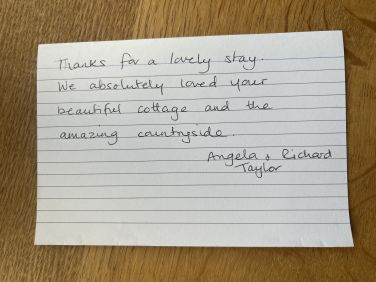 Thanks for a lovely stay.
We absolutely loved your
beautiful cottage and the
amazing countryside.
Angela & Richard
Taylor